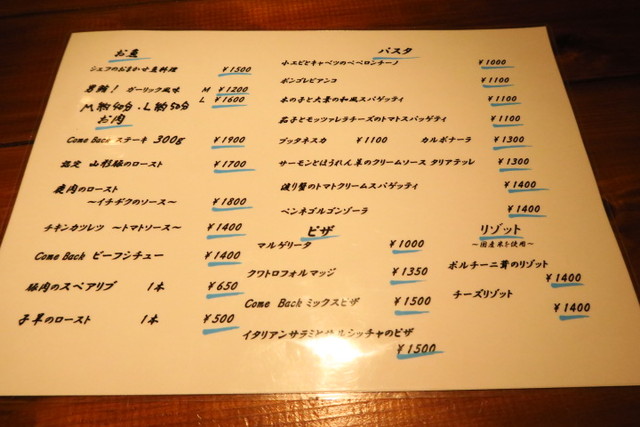 お魚
シェフのおまかせ魚料理 ¥1500
ガーリック風味 M ¥1200
L ¥1600
M約40分・L約50分
お肉
Come Back ステーキ 300g ¥1900
認定 山形豚のロースト ¥1700
鹿肉のロースト
～イチヂクのソース～ ¥1800
チキンカツレツ ～トマトソース～ ¥1400
Come Back ビーフシチュー ¥1400
豚肉のスペアリブ 1本 ¥650
子羊のロースト 1本 ¥500
パスタ
小エビとキャベツのペペロンチーノ ¥1000
ボンゴレビアンコ ¥1100
木の子と大葉の和風スパゲッティ ¥1100
茄子とモッツァレラチーズのトマトスパゲッティ ¥1100
プッタネスカ ¥1100 カルボナーラ ¥1300
サーモンとほうれん草のクリームソース タリアテッレ ¥1300
渡り蟹のトマトクリームスパゲッティ ¥1400
ペンネゴルゴンゾーラ ¥1400
ピザ
マルゲリータ ¥1000
クワトロフォルマッジ ¥1350
Come Back ミックスピザ ¥1500
イタリアンサラミとサルシッチャのピザ
¥1500
リゾット
～国産米を使用～
ポルチーニ茸のリゾット
¥1400
チーズリゾット
¥1400